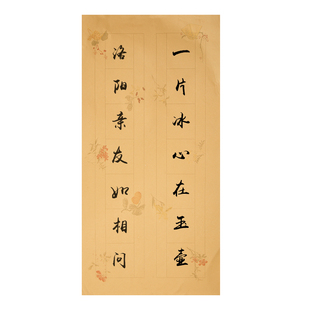 洛阳亲友如相问
一片冰心在玉壶